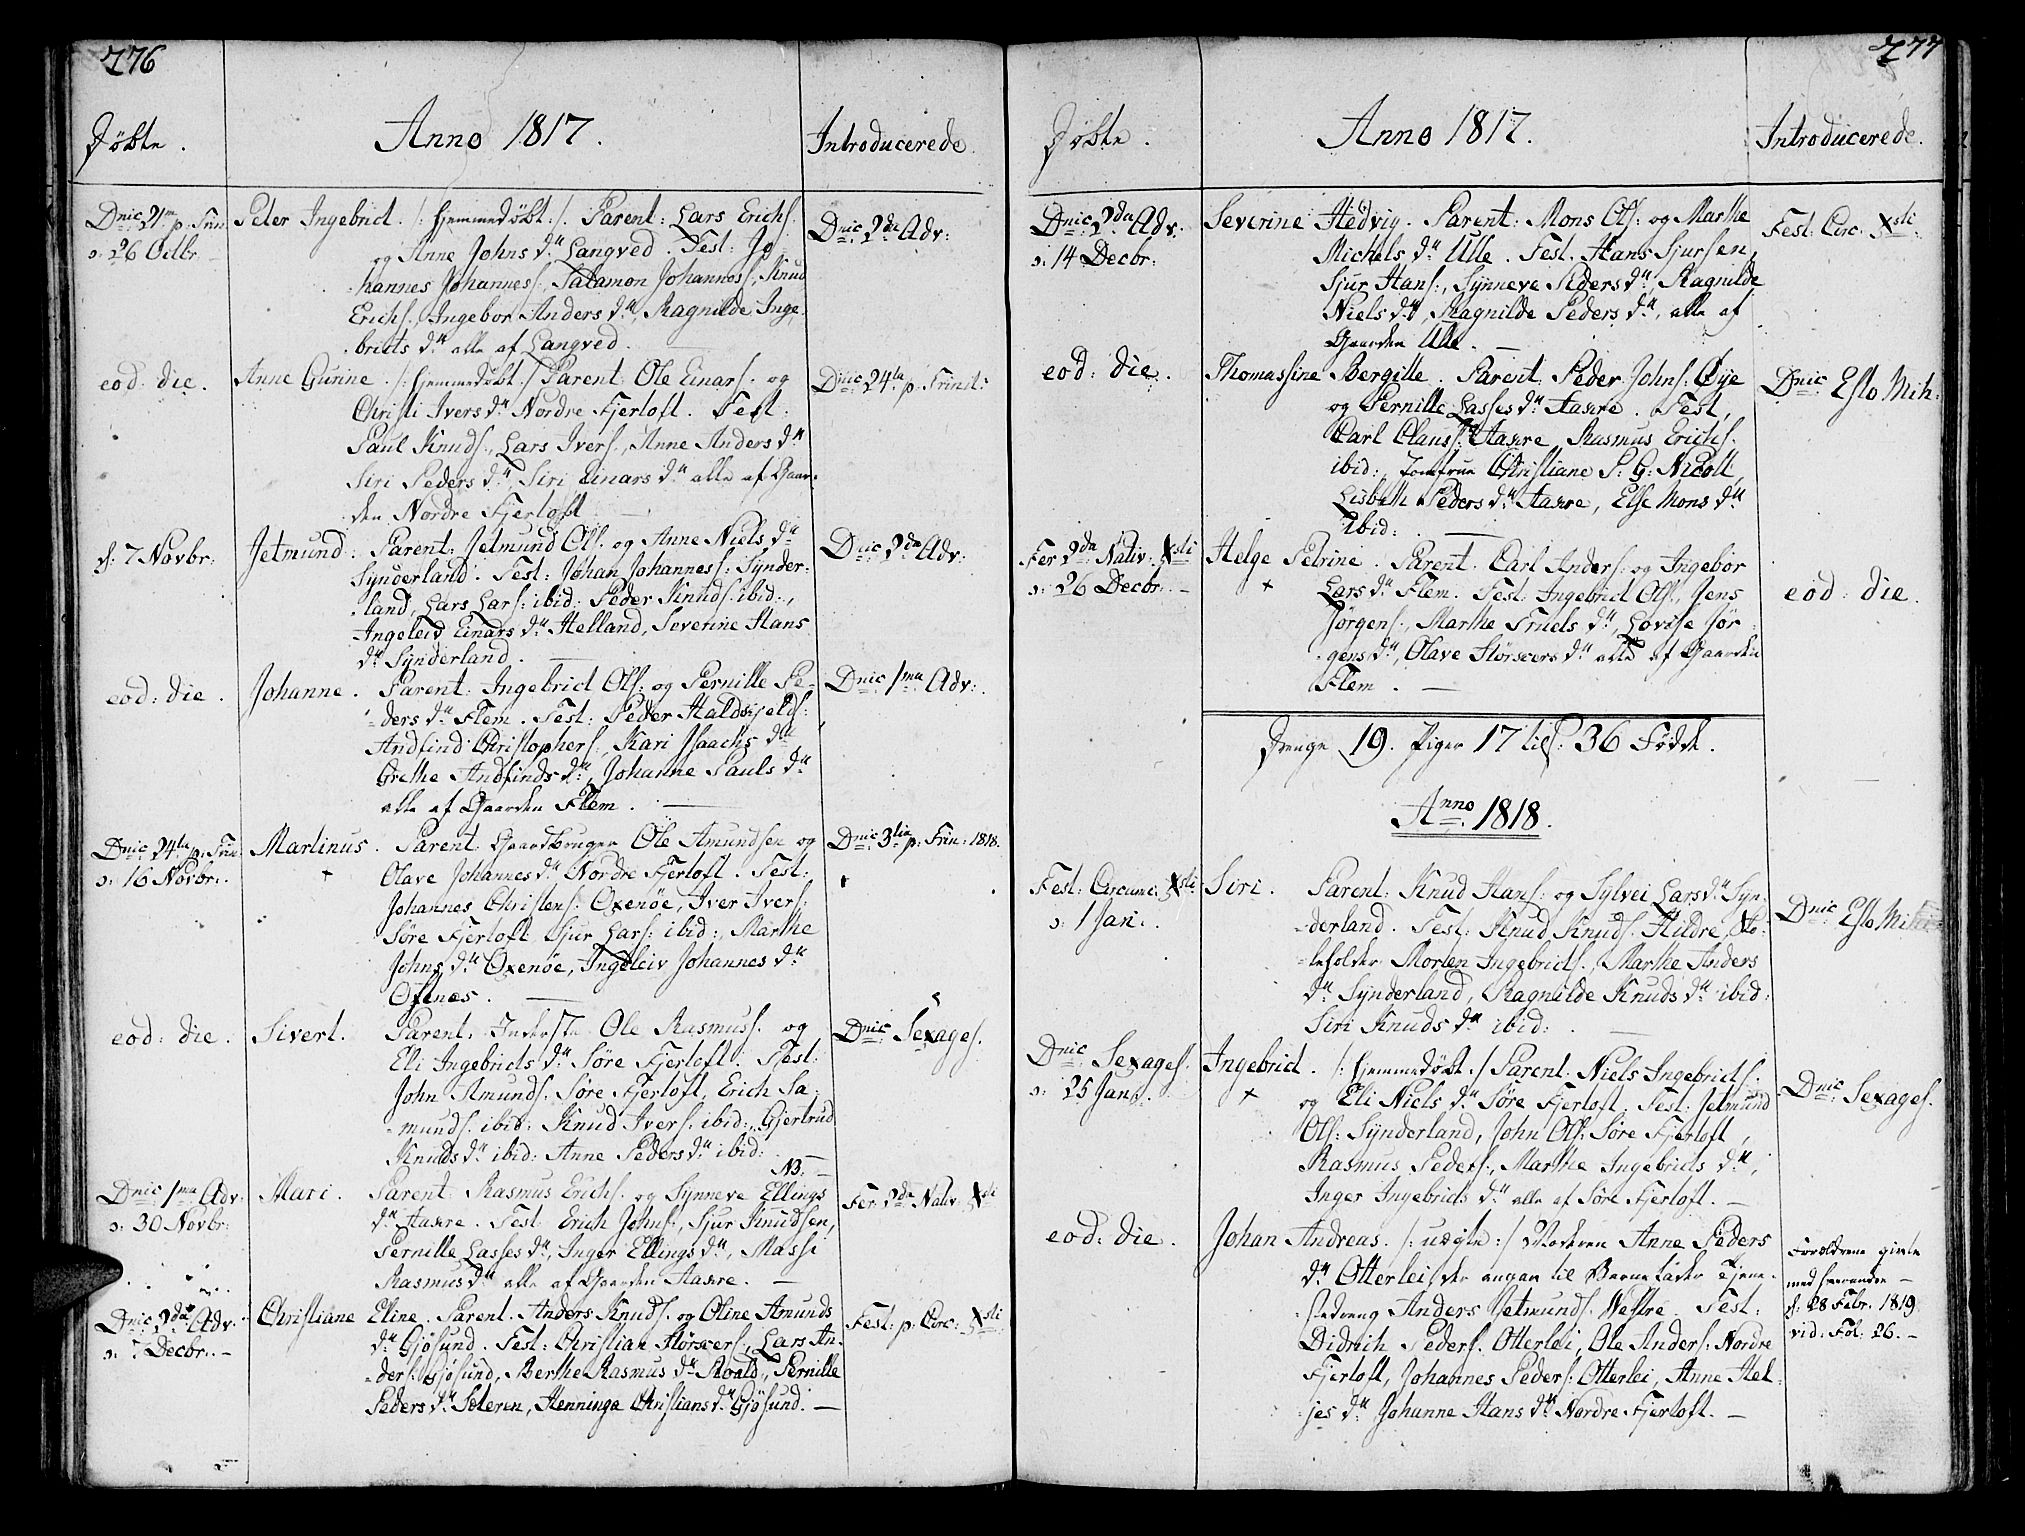 776
Døbte.
Anno 1817.
Introducerede
Dnic: 21me p. Trin
ɔ: 26 Octbr.
Peter Ingebrict. /: hjemmedøbt :/. Parent: Lars Erichs.
og Anne Johns dr Langved. Test: Jo-
hannes Johannes:, Salamon Johannes:, Knud
Erichs:, Ingebor Anders dr, Ragnilde Inge-
bricts dr alle af Langved.
Dnic: 2de Adv:
eod: die.
Anne Gurine. /: hjemmedøbt :/ Parent: Ole Einars: og
Christi Ivers dr Nordre Fjertoft. Test:
Paul Knuds:, Lars Ivers:, Anne Anders dr
Siri Peders dr Siri Einars dr alle af Gaar-
den Nordre Fjertoft
Dnic: 24te p. Trinit:
d: 7 Novbr:
Jetmund. Parent: Jetmund Ols: og Anne Niels dr
Synderland. Test: Johan Johannes: Synder-
land, Lars Lars: ibid: Peder Knuds. ibid:,
Ingeleiv Einars dr Helland, Severine Hans
dr Synderland.
Dnic: 2da Adv:
eod: die.
Johanne. Parent: Ingebrict Ols: og Pernille Pe-
ders dr Flem. Test: Peder Haldkjelds:
Andfind Christophers:, Kari Isaachs dr
Grethe Andfinds dr, Johanne Pauls dr
alle af Gaarden Flem.
Dnic: 1ma Adv:
Dnic: 24te p: Trin:
ɔ: 16 Novbr:
Martinus. Parent Gaardbruger Ole Amundsen og
Olave Johannes dr Nordre Fjertoft. Test:
Johannes Christens: Oxenøe, Iver Ivers:
Søre Fjertoft Sjur Lars: ibid:, Marthe
Johns dr Oxenøe, Ingeleiv Johannes dr
Ofsnæs.
Dnic: 3tia p: Trin: 1818.
eod: die.
Sivert. Parent: Inderste Ole Rasmus: og
Eli Ingebricts dr Søre Fjertoft. Test:
John Amunds: Søre Fjertoft, Erich Sa-
munds. ibid: Knud Ivers. ibid:, Gjertrud
Knuds dr ibid: Anne Peders dr ibid:
NB.
Dnic: Sexages.
Dnic 1ma Adv.
ɔ: 30 Novbr:
Mari. Parent: Rasmus Erichs. og Synneve Ellings
dr Aasre. Test Erich Johns:, Sjur Knudsen,
Pernille Lasses dr, Inger Ellings dr, Massi
Rasmus dr alle af Gaarden Aasre.
Fer: 2da Nativ: Xsti
Dnic: 2da Adv.
ɔ: 7 Decbr:
Christiane Eline. Parent. Anders Knuds. og Oline Amunds
dr Gjøsund. Test: Christian Størsers:, Lars An-
ders: Gjøsund, Berthe Rasmus dr Roald, Pernille
Peders dr Sæteren, Henninga Christians dr Gjøsund.
Fest: p: Circ: Xsti
777
Døbte.
Anno 1817.
Introducerede.
Dnic: 2da Adv.
ɔ: 14 Decbr:
Severine Hedvig. Parent: Mons Ols: og Marthe
Michels dr Ulle. Test. Hans Sjursen,
Sjur Hans:, Synneve Peders dr, Ragnilde
Niels dr, Ragnilde Peders dr, alle af
Gaarden Ulle.
Fest: Circ: Xsti:
eod: die.
Thomassine Bergitte. Parent: Peder Johns: Øye
og Pernille Lasses dr Aasre. Test,
Carl Claus: Aasre, Rasmus Erichs.
ibid:, Jomfrue Christiane S. G: Nicoll,
Lisbeth Peders dr Aasre, Else Mons dr
ibid:
Dnic Esto Mih:
Fer 2da Nativ: Xsti
ɔ: 26 Decbr:
Helge Petrine. Parent. Carl Anders: og Ingebor
Lars dr Flem. Test Ingebrict Ols:, Jens
Jørgens:, Marthe Truels dr, Lovise Jør-
gens dr, Olave Størsers dr alle af Gaarden
Flem.
eod: die.
Drenge 19. Piger 17 tils: 36 Fødde.
Anno 1818.
Fest: Circumc: Xsti
ɔ: 1 Jan:.
Siri. Parent: Knud Hans: og Sylvei Lars dr Syn-
derland. Test: Knud Knuds. Hildre, Sko-
leholder Morten Ingebricts:, Marthe Anders
dr Synderland, Ragnilde Knuds dr ibid:
Siri Knuds dr ibid:
Dnic Esto Mih
Dnic Sexages.
ɔ: 25 Jan:
Ingebrict. /: hjemmedøbt :/ Parent: Niels Ingebricts.
og Eli Niels dr Søre Fjertoft. Test: Jetmund
Ols: Synderland, John Ols: Søre Fjertoft,
Rasmus Peders:, Marthe Ingebricts dr,
Inger Ingebricts dr alle af Søre Fjertoft.
Dnic: Sexages.
eod: die.
Johan Andreas. /: uægte :/ Moderen Anne Peders
dr Otterlei, der angav til Barnefader Tjene-
stedreng Anders Jetmunds. Nestre. Test:
Didrich Peders. Otterlei, Ole Anders: Nordre
Fjertoft, Johannes Peders: Otterlei, Anne Hel-
jes dr Johanne Hans dr Nordre Fjertoft.
Forældrene givte
med hverandre
d: 28 Febr. 1819
vid: Fol: 26.